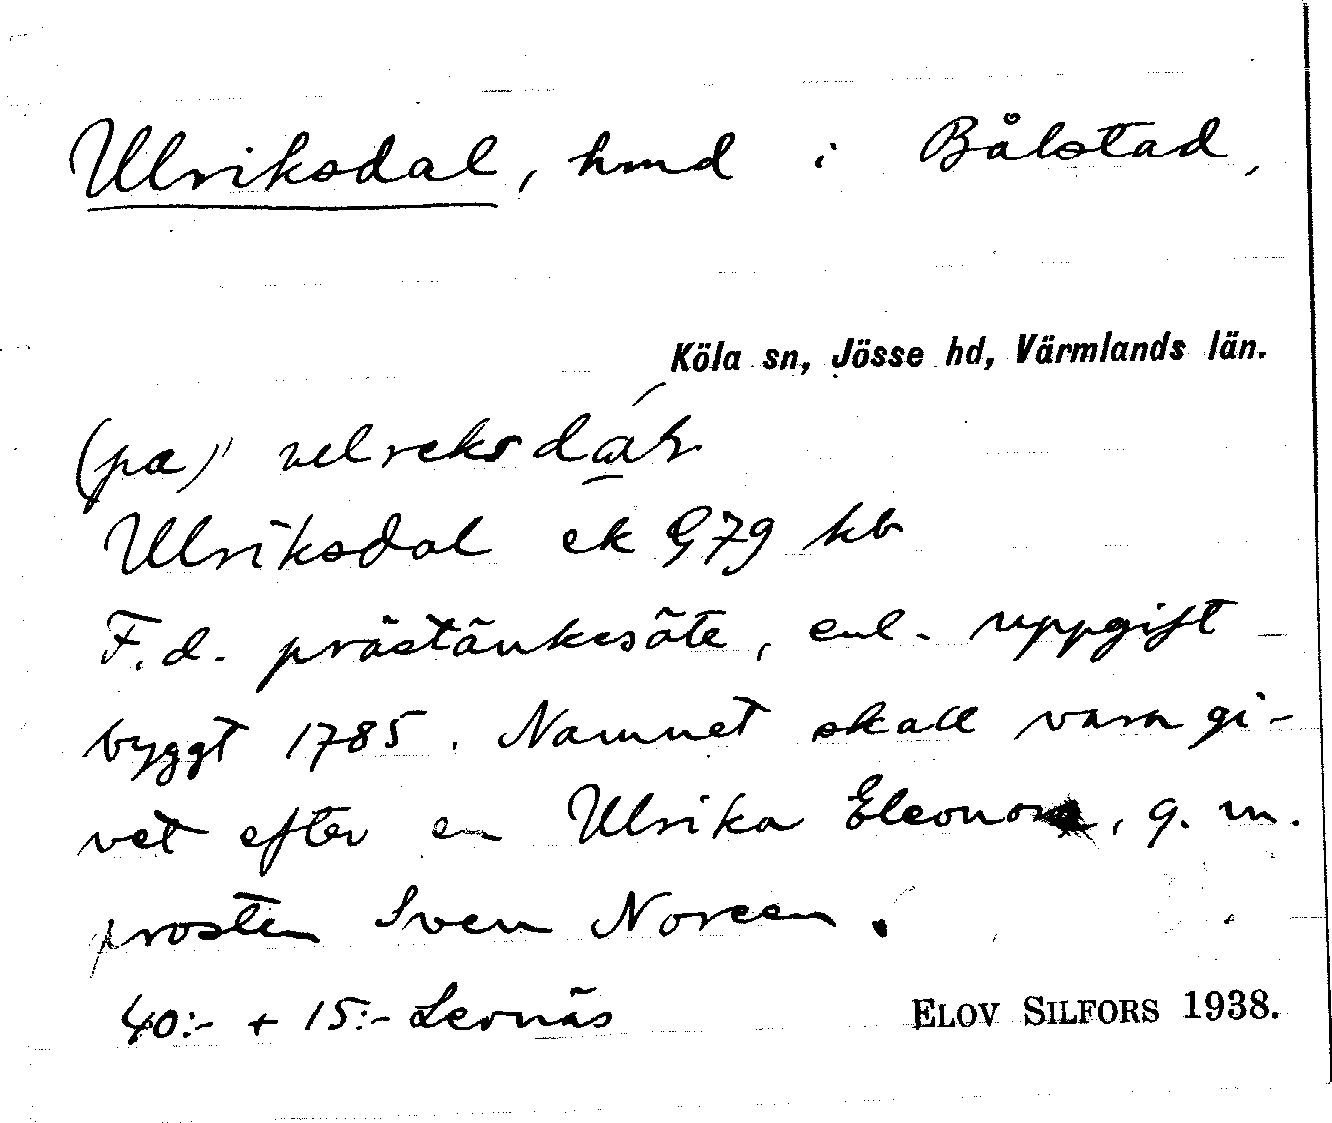 Ulriksdal, hmd i Bålstad,
Köla sn, Jösse hd, Värmlands län.
(pa)
Ulriksdal ek G79 kb
F.d. prästänkesäte, enl. uppgift
byggt 1785. Namnet skall vara gi-
vet efter en Ulrika Eleonora, g. m.
prosten Sven Noreen.
40:- + 15:- Lernäs
ELOV SILFORS 1938.